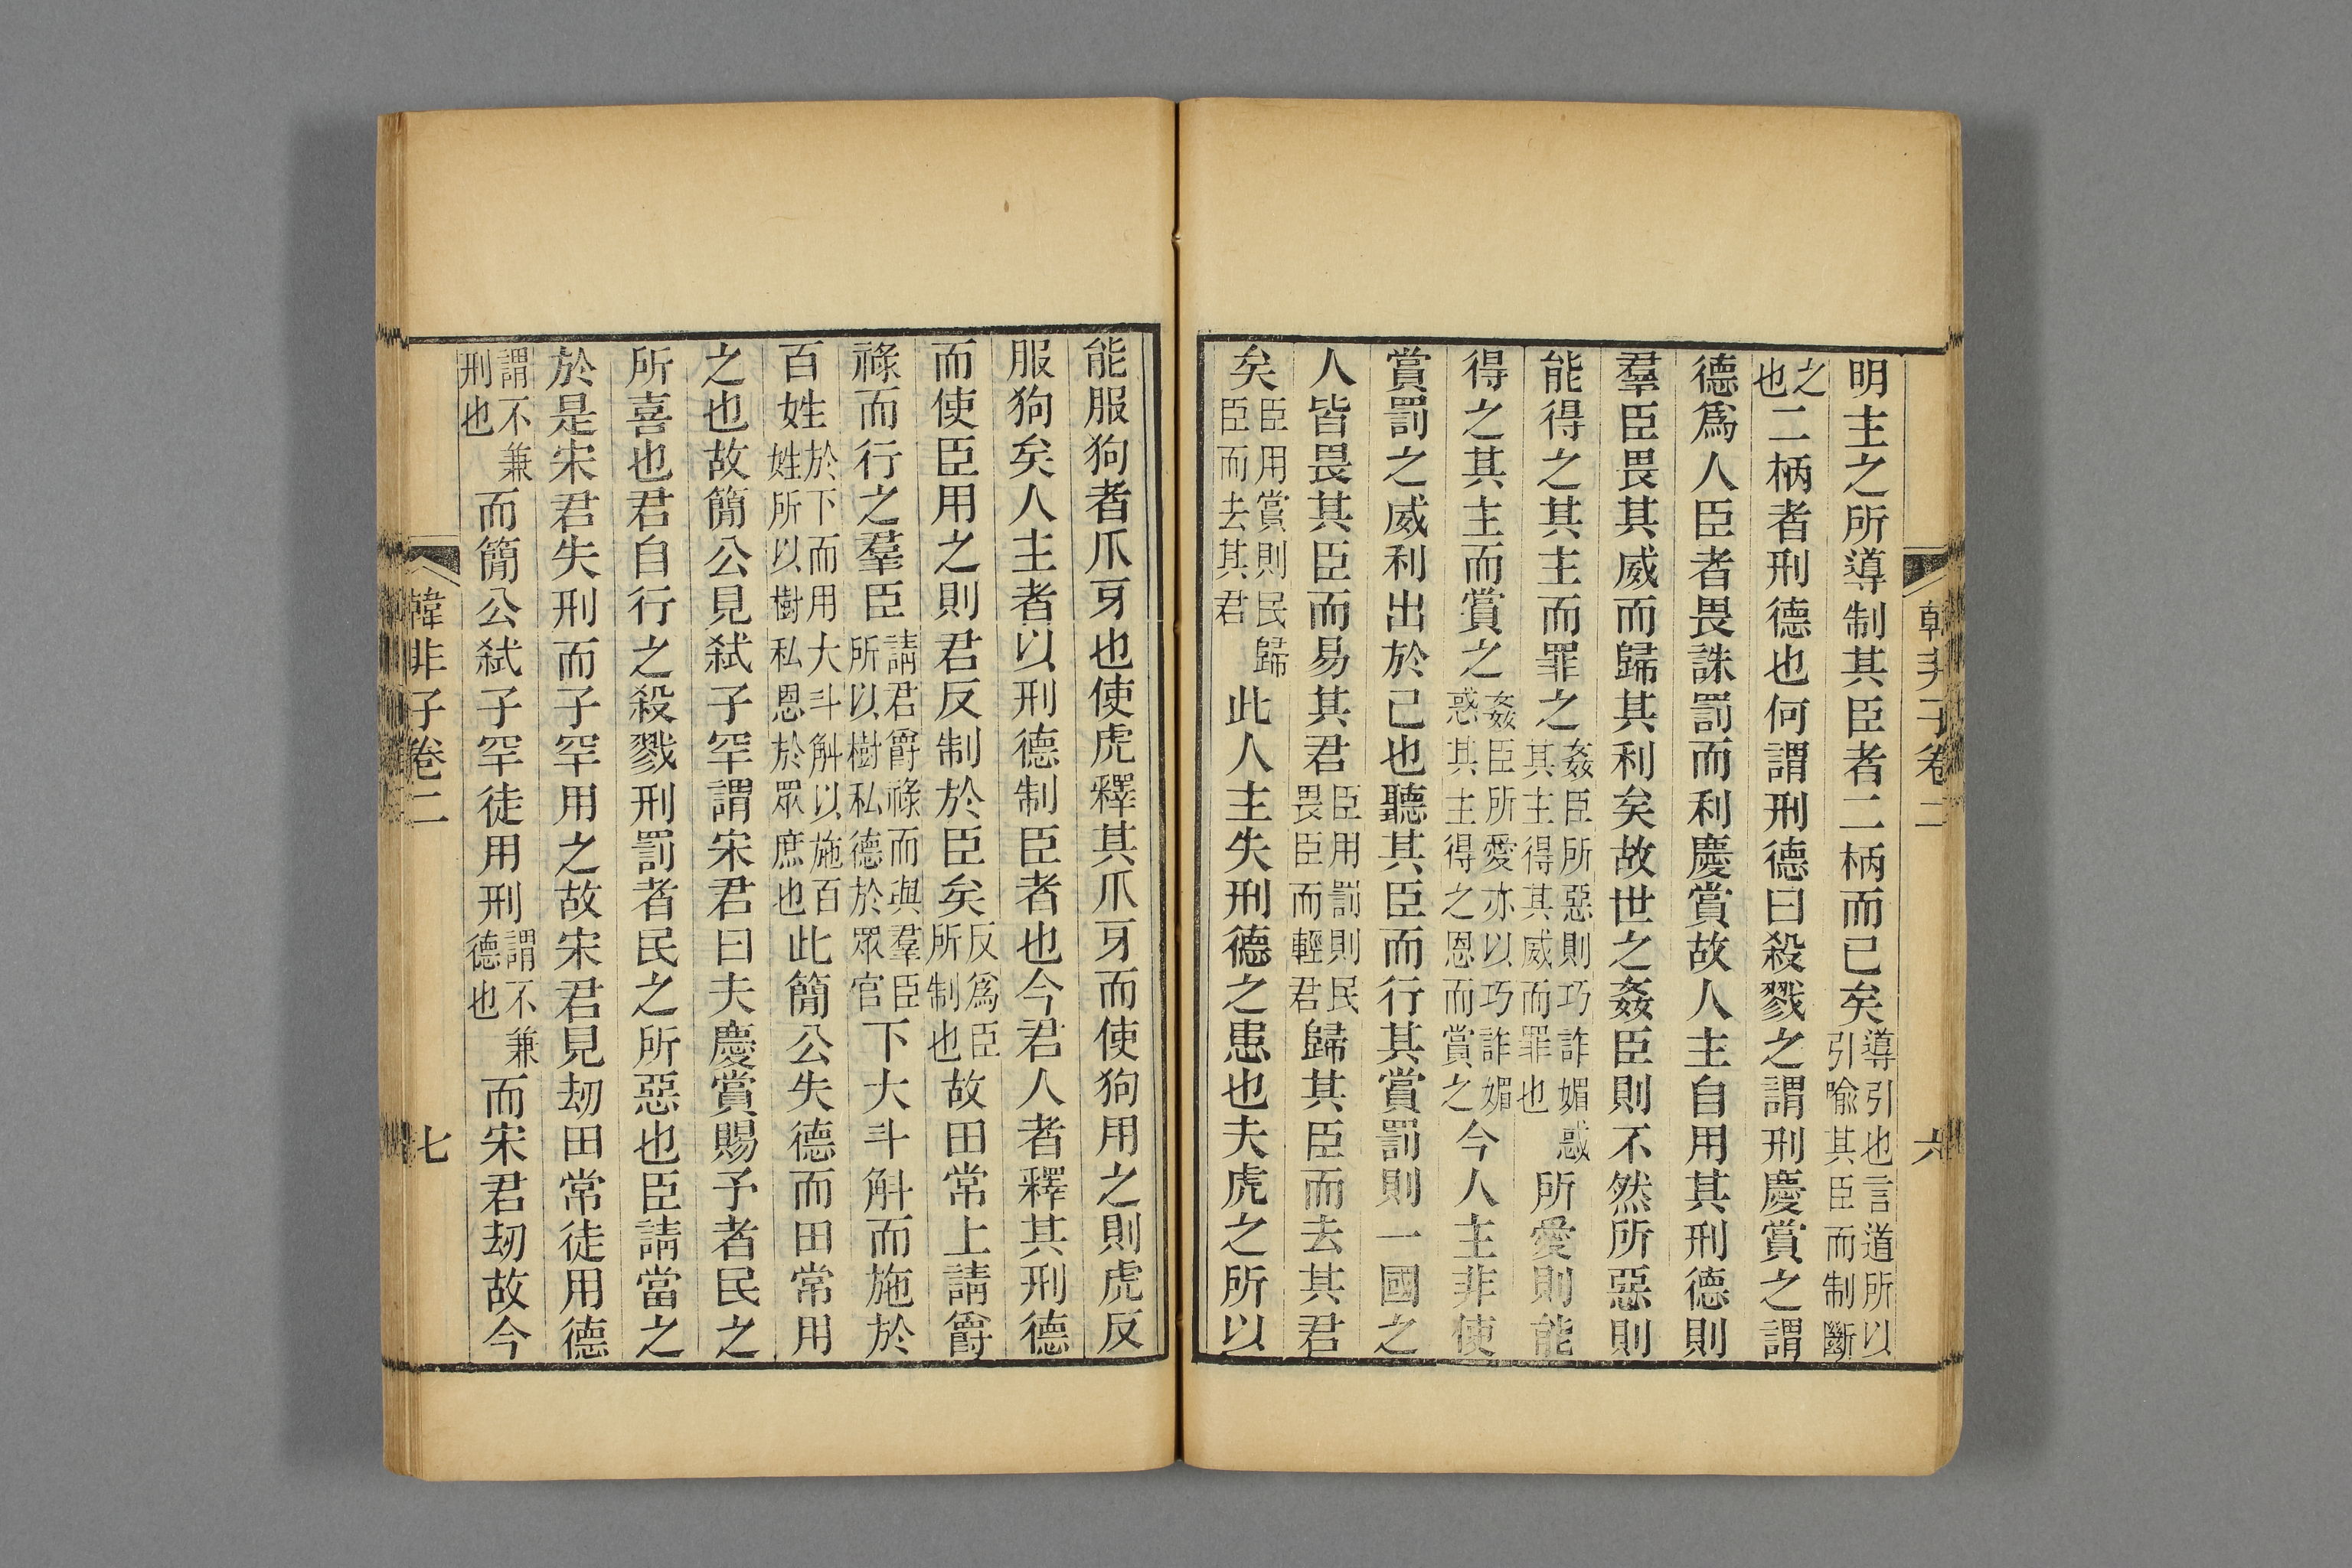 韓非子卷二
六
明主之所導制其臣者二柄而已矣導引也言道所以引喻其臣而制斷
之也二柄者刑德也何謂刑德曰殺戮之謂刑慶賞之謂
德爲人臣者畏誅罰而利慶賞故人主自用其刑德則
羣臣畏其威而歸其利矣故世之姦臣則不然所惡則
能得之其主而罪之姦臣所惡則巧詐媚惑其主得其威而罪也所愛則能
得之其主而賞之姦臣所愛亦以巧詐媚惑其主得之恩而賞之今人主非使
賞罰之威利出於己也聽其臣而行其賞罰則一國之
人皆畏其臣而易其君臣用罰則民畏臣而輕君歸其臣而去其君
矣臣用賞則民歸臣而去其君此人主失刑德之患也夫虎之所以
能服狗者爪牙也使虎釋其爪牙而使狗用之則虎反
服狗矣人主者以刑德制臣者也今君人者釋其刑德
而使臣用之則君反制於臣矣反爲臣所制也故田常上請爵
祿而行之羣臣請君爵祿而與羣臣所以樹私德於眾官下大斗斛而施於
百姓於下而用大斗斛以施百姓所以樹私恩於眾庶也此簡公失德而田常用
之也故簡公見弒子罕謂宋君曰夫慶賞賜予者民之
所喜也君自行之殺戮刑罰者民之所惡也臣請當之
於是宋君失刑而子罕用之故宋君見劫田常徒用德
謂不兼刑也而簡公弒子罕徒用刑謂不兼德也而宋君劫故今
韓非子卷二
七